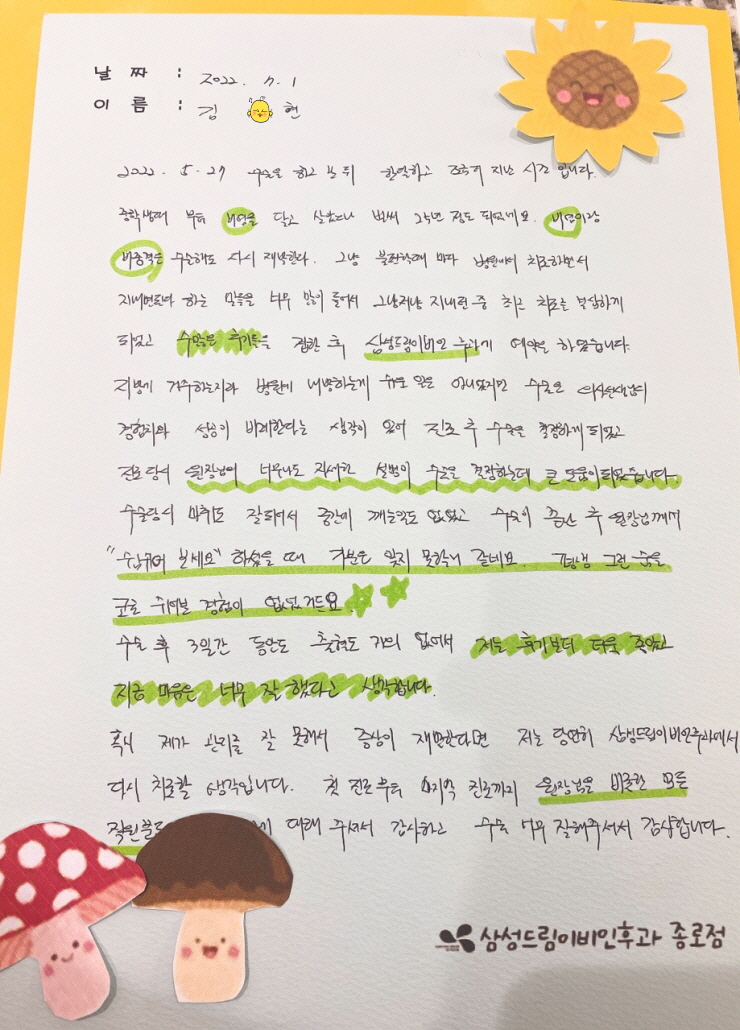 날 짜 : 2022. 7. 1
이 름 : 김 현
2022. 5. 27 수술을 하고 한달하고 조금 지난 시간입니다.
중학생때 부터 비염을 달고 살았더니 벌써 25년 정도 되었네요. 비염이랑
비중격은 수술해도 다시 재발한다. 그냥 불편할때 마다 병원에서 치료하면서
지내면된다 하는 말들을 너무 많이 들어서 그냥저냥 지내던 중 최근 치료는 부실하게
되었고 수많은 후기들을 접한 후 삼성드림이비인후과에 예약을 하였습니다.
지방에 거주하는지라 병원에 내방하는게 쉬운 일은 아니었지만 수술은 의사선생님의
경험치와 성공이 비례한다는 생각이 있어 진료 후 수술을 결정하게 되었고
진료 당시 원장님의 너무나도 자세한 설명이 수술을 결정하는데 큰 도움이 되었습니다.
수술당시 마취도 잘되어서 중간에 깨는일도 없었고 수술이 끝난 후 원장님께서
"숨쉬어 보세요" 하셨을 때 기분은 잊지 못할거 같네요. 평생 그런 숨을
코로 쉬어본 경험이 없었거든요.
수술 후 3일간 동안도 출혈도 거의 없어서 저는 후기보다 더욱 좋았고
지금 마음은 너무 잘 했다고 생각합니다.
혹시 제가 관리를 잘 못해서 증상이 재발한다면 저는 당연히 삼성드림이비인후과에서
다시 치료할 생각입니다. 첫 진료부터 마지막 진료까지 원장님을 비롯한 모든
직원분들 대해 주셔서 감사하고 수술 너무 잘해주셔서 감사합니다.
삼성드림이비인후과 종로점